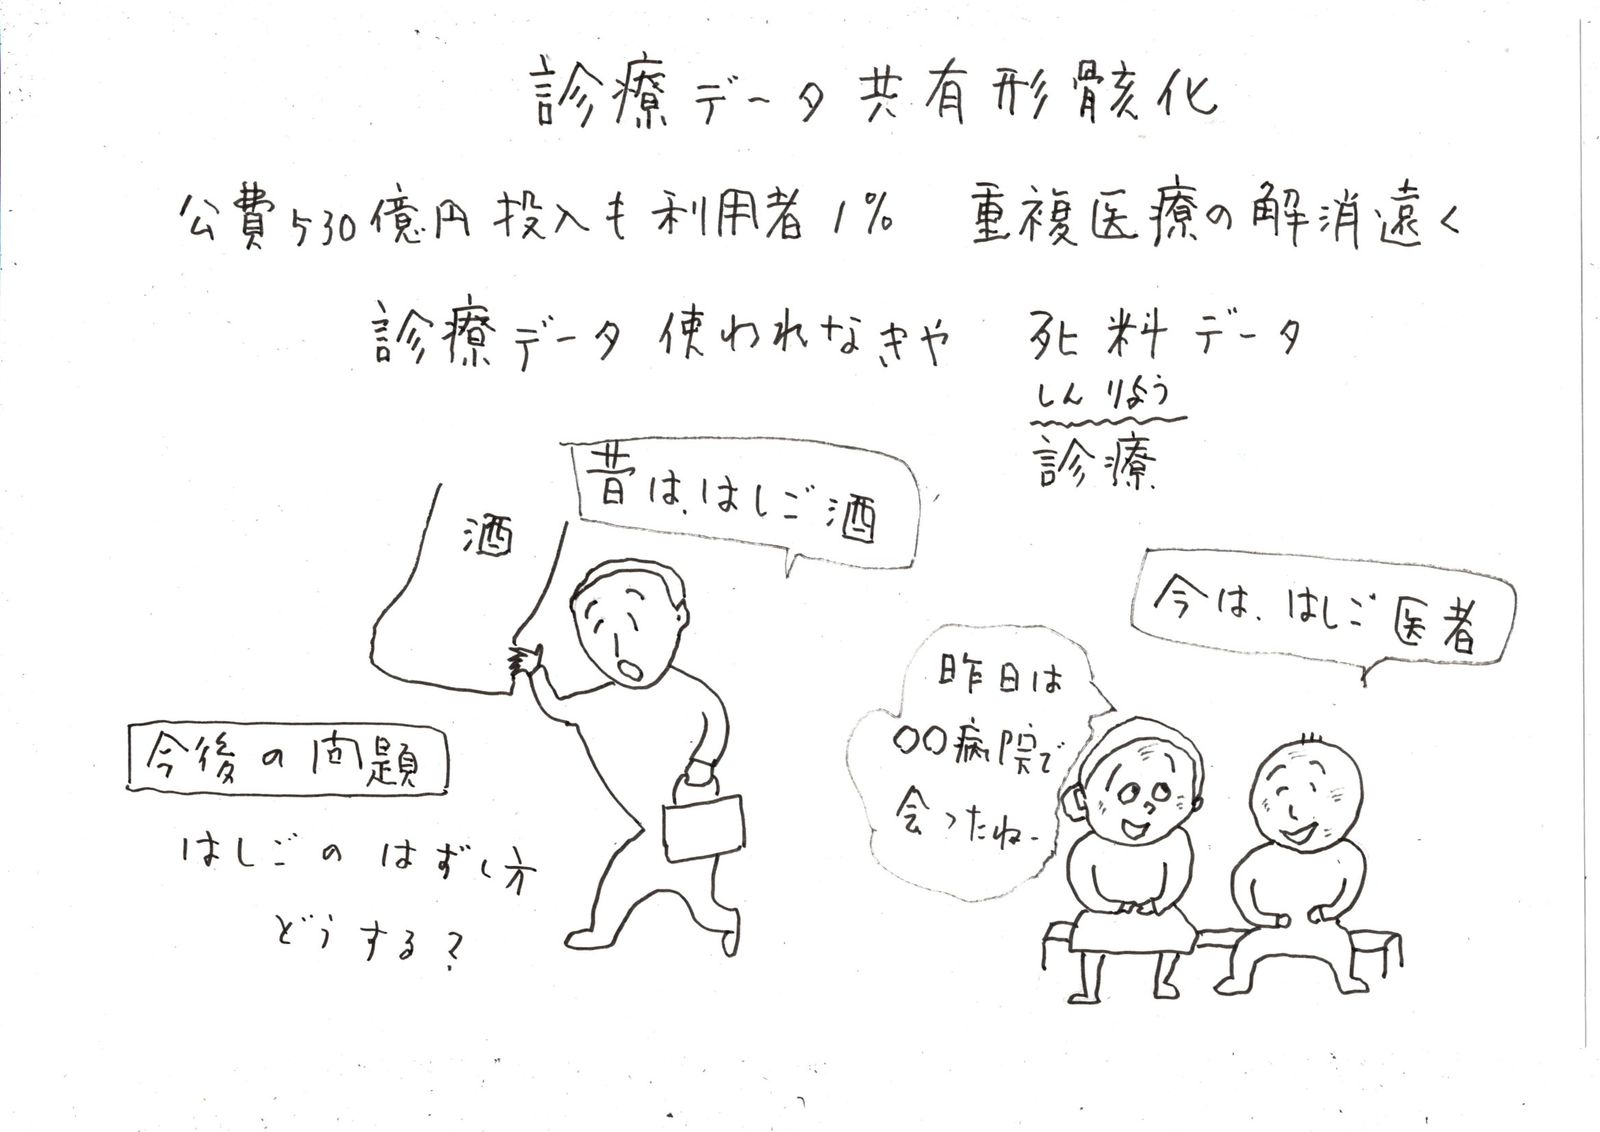 診療データ共有形骸化
公費530億円投入も利用者1% 重複医療の解消遠く
診療データ使われなきゃ 死料データ
しんりょう
診療
昔は、はしご酒
酒
今は、はしご医者
昨日は
〇〇病院で
会ったねー
今後の問題
はしごのはずし方
どうする?